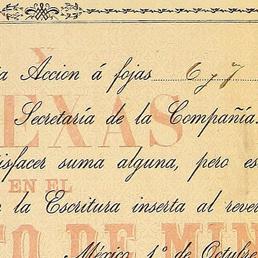 a Accion á fojas 6 y 7
EXAS
Secretaría de la Compañía.
isfacer suma alguna, pero es
EN EL
n la Escritura inserta al rever
TO DE MIN
México, 1º de Octubre